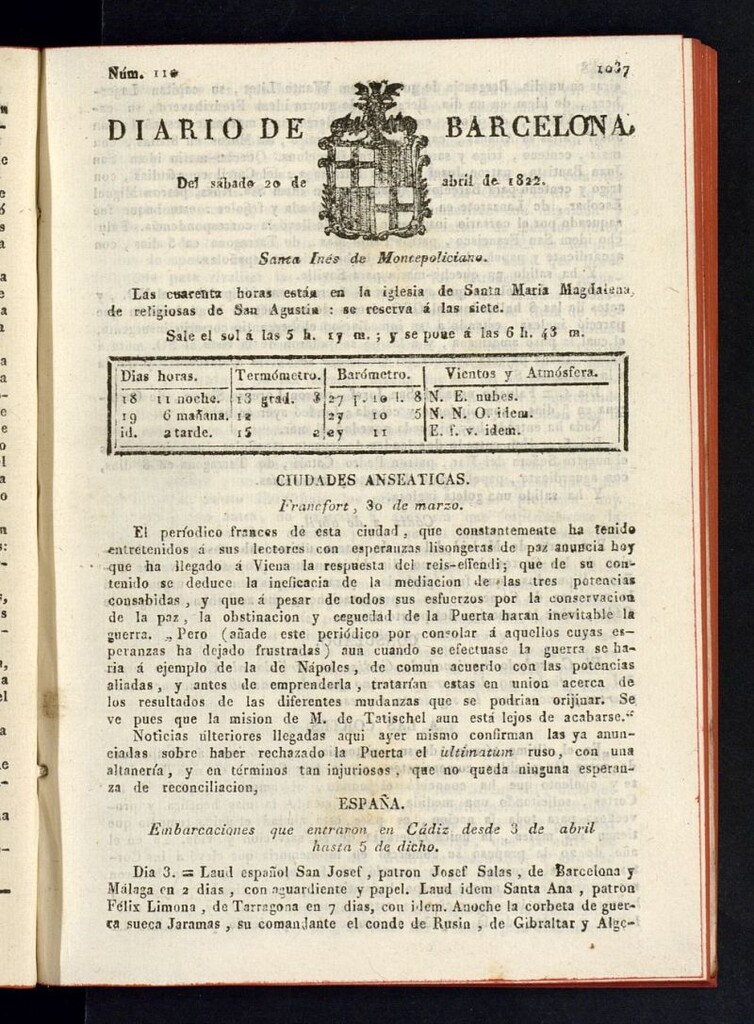 Núm. 110
1037
DIARIO DE BARCELONA,
Del sábado 20 de abril de 1822.
Santa Inés de Montepoliciano.
Las cuarenta horas están en la iglesia de Santa Maria Magdalena,
de religiosas de San Agustin : se reserva á las siete.
Sale el sol á las 5 h. 17 m. ; y se pone á las 6 h. 43 m.
Dias horas. Termómetro. Barómetro. Vientos y Atmósfera.
18 11 noche. 13 grad. 8 27 p. 10 l. 8 N. E. nubes.
19 6 mañana. 12 27 10 5 N. N. O. idem.
id. 2 tarde. 15 2 27 11 E. f. v. idem.
CIUDADES ANSEATICAS.
Francfort, 30 de marzo.
El períodico frances de esta ciudad, que constantemente ha tenido
entretenidos á sus lectores con esperanzas lisongeras de paz anuncia hoy
que ha llegado á Viena la respuesta del reis-effendi; que de su con-
tenido se deduce la ineficacia de la mediacion de las tres potencias
consabidas, y que á pesar de todos sus esfuerzos por la conservacion
de la paz, la obstinacion y ceguedad de la Puerta haran inevitable la
guerra. „Pero (añade este periódico por consolar á aquellos cuyas es-
peranzas ha dejado frustradas) aun cuando se efectuase la guerra se ha-
ria á ejemplo de la de Nápoles, de comun acuerdo con las potencias
aliadas, y antes de emprenderla, tratarían estas en union acerca de
los resultados de las diferentes mudanzas que se podrian orijinar. Se
ve pues que la mision de M. de Tatischef aun está lejos de acabarse.“
Noticias últeriores llegadas aqui ayer mismo confirman las ya anun-
ciadas sobre haber rechazado la Puerta el ultimatum ruso, con una
altanería, y en términos tan injuriosos, que no queda ninguna esperan-
za de reconciliacion,
ESPAÑA.
Embarcaciones que entraron en Cádiz desde 3 de abril
hasta 5 de dicho.
Dia 3. = Laud español San Josef, patron Josef Salas, de Barcelona y
Málaga en 2 dias, con aguardiente y papel. Laud idem Santa Ana, patron
Félix Limona, de Tarragona en 7 dias, con idem. Anoche la corbeta de guer-
ra sueca Jaramas, su comandante el conde de Rusin, de Gibraltar y Alge-